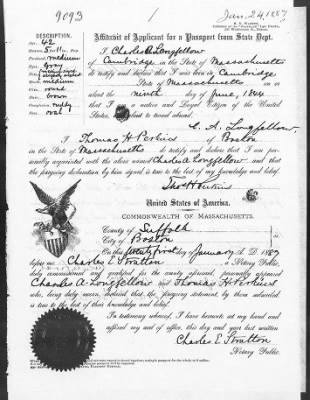 9093
Jan. 24, 1887
DESCRIPTION.
Affidavit of Applicant for a Passport from State Dept.
Age, 42
medium
gray
medium
round
brown
ruddy
oval
I Charles A Longfellow
of Cambridge in the State of Massachusetts
do testify and declare that I was born in Cambridge
State of Massachusetts on or
about the ninth day of June, 1844
that I am a native and Loyal Citizen of the United
States, about to travel abroad.
C. A. Longfellow.
I Thomas H Perkins of Boston
in the State of Massachusetts do testify and declare that I am per-
sonally acquainted with the above named Charles A Longfellow and that
the foregoing declaration by him signed is true to the best of my knowledge and belief.
Thos H Perkins
United States of America.
COMMONWEALTH OF MASSACHUSETTS.
County of Suffolk
City of Boston
On this twenty first day of January A. D. 1887
before me Charles E. Stratton a Notary Public,
duly commissioned and qualified for the county aforesaid, personally appeared
Charles A. Longfellow and Thomas H. Perkins
who, being duly sworn, declared that the foregoing statement by them subscribed
is true to the best of their knowledge and belief.
In testimony whereof, I have hereunto set my hand and
affixed my seal of office, this day and year last written
Charles E. Stratton
Notary Public.